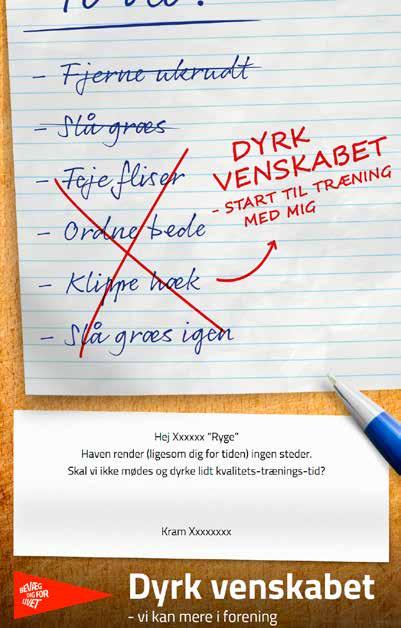 - Fjerne ukrudt
- Slå græs
- Feje fliser
- Ordne bede
- Klippe hæk
- Slå græs igen
DYRK
VENSKABET
- START TIL TRÆNING
MED MIG
Hej Xxxxxx "Ryge"
Haven render (ligesom dig for tiden) ingen steder.
Skal vi ikke mødes og dyrke lidt kvalitets-trænings-tid?
Kram Xxxxxxxx
BEVÆG
DIG FOR
LIVET
Dyrk venskabet
- vi kan mere i forening